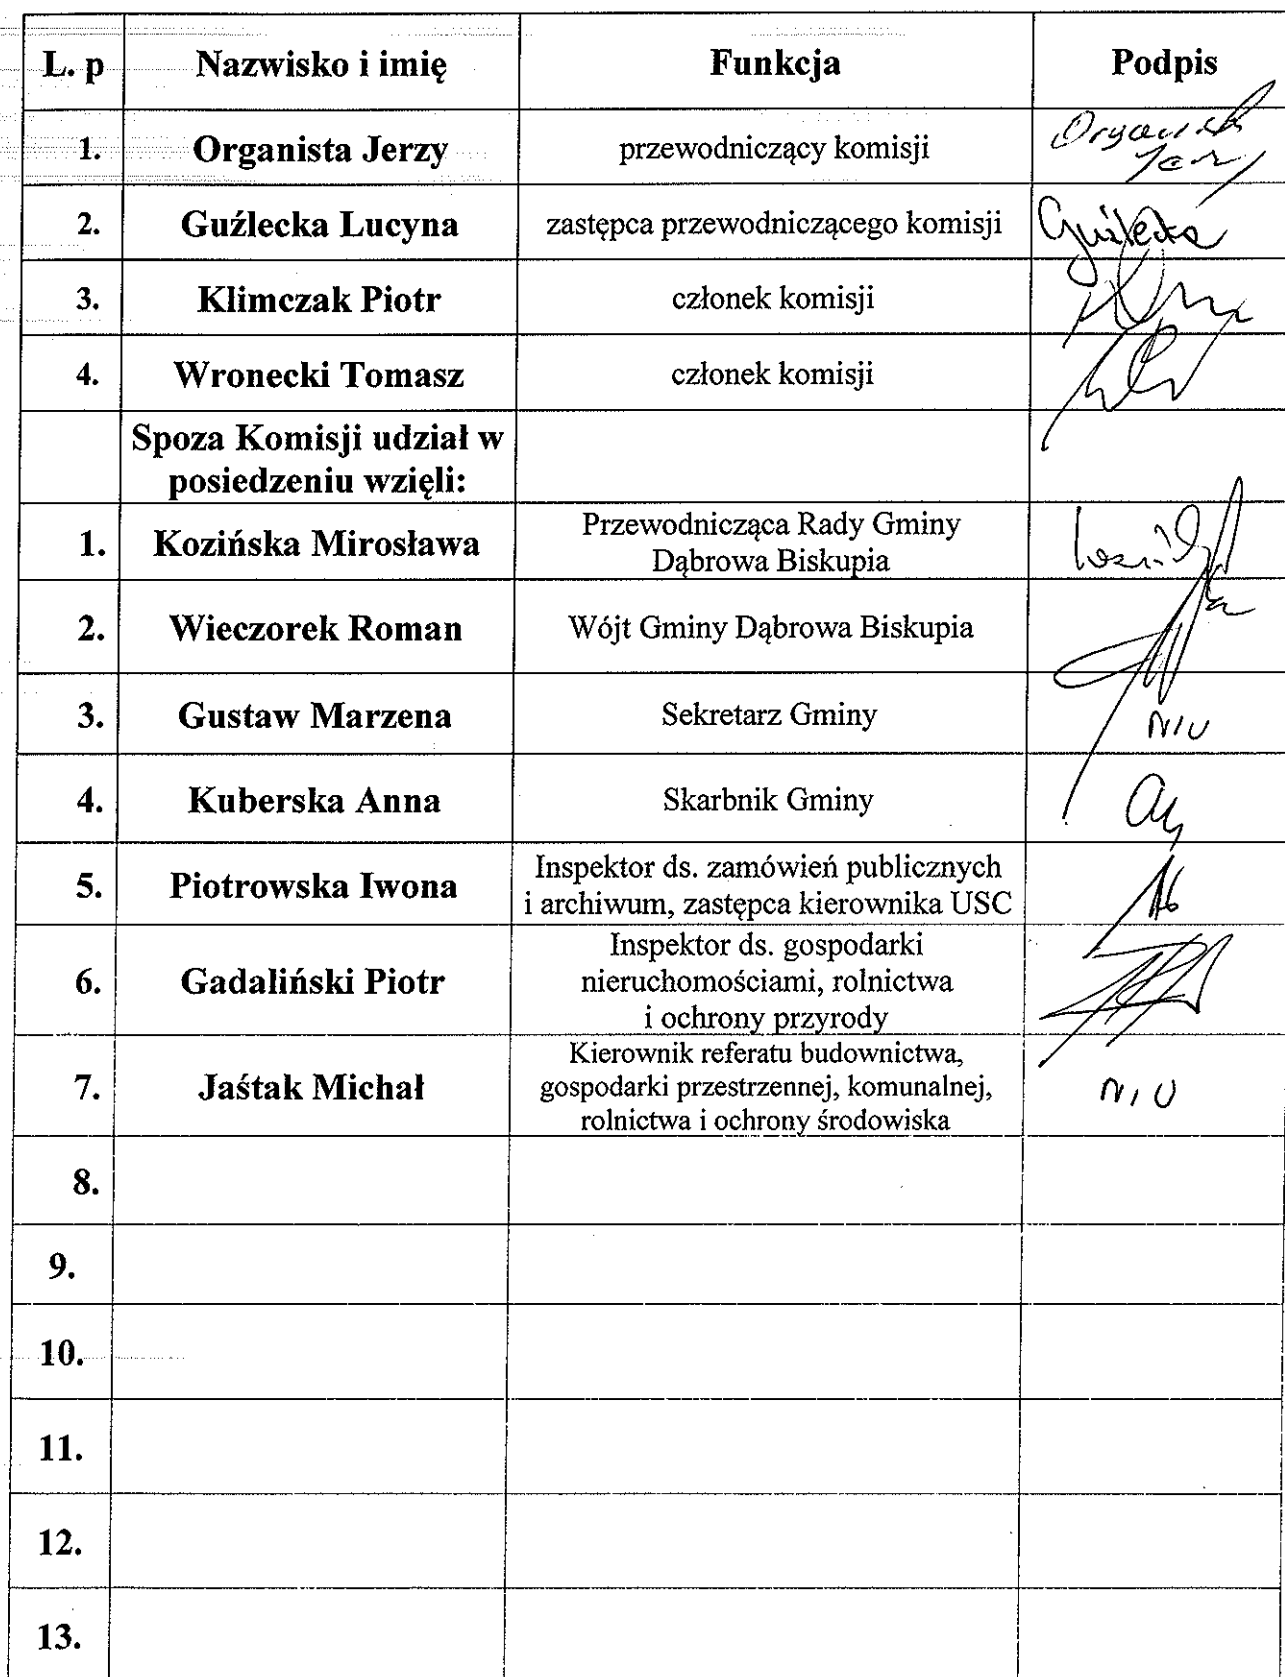 L. p Nazwisko i imię Funkcja Podpis
1. Organista Jerzy przewodniczący komisji
2. Guźlecka Lucyna zastępca przewodniczącego komisji Guźlecka
3. Klimczak Piotr członek komisji
4. Wronecki Tomasz członek komisji
Spoza Komisji udział w
posiedzeniu wzięli:
1. Kozińska Mirosława Przewodnicząca Rady Gminy
Dąbrowa Biskupia
2. Wieczorek Roman Wójt Gminy Dąbrowa Biskupia
3. Gustaw Marzena Sekretarz Gminy N/U
4. Kuberska Anna Skarbnik Gminy
5. Piotrowska Iwona Inspektor ds. zamówień publicznych
i archiwum, zastępca kierownika USC
6. Gadaliński Piotr Inspektor ds. gospodarki
nieruchomościami, rolnictwa
i ochrony przyrody
7. Jaśtak Michał Kierownik referatu budownictwa,
gospodarki przestrzennej, komunalnej,
rolnictwa i ochrony środowiska N/U
8.
9.
10.
11.
12.
13.